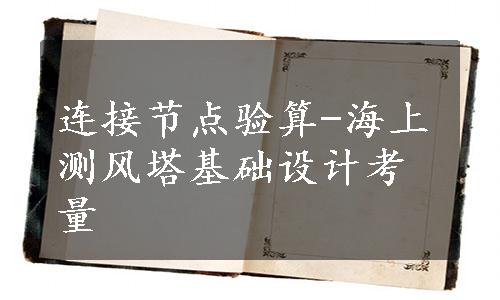 连接节点验算-海上
测风塔基础设计考
量